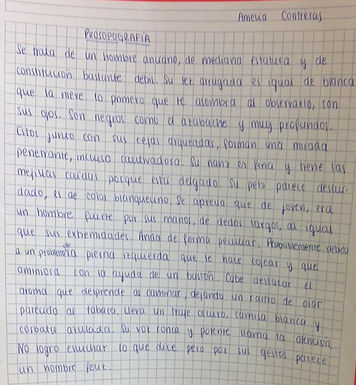 Amelia Contreras
PROSOPOGRAFÍA
Se trata de un hombre anciano, de mediana estatura y de
constitución bastante débil. Su tez arrugada es igual de blanca
que la nieve. Lo primero que te asombra al observarlo, son
sus ojos. Son negros como el azabache y muy profundos.
Estos junto con sus cejas arqueadas, forman una mirada
penetrante, incluso cautivadora. Su nariz es fina y tiene las
mejillas caídas porque está delgado. Su pelo parece descui-
dado, es de color blanquecino. Se aprecia que de joven, era
un hombre fuerte por sus manos, de dedos largos, al igual
que sus extremidades. Anda de forma peculiar. Probablemente debido
a un problema de pierna izquierda que le hace cojear y que
aminora con la ayuda de un bastón. Cabe destacar el
aroma que desprende al caminar, dejando un rastro de olor
parecido al tabaco. Lleva un traje oscuro, camisa blanca y
corbata azulada. Su voz ronca y potente llama la atención.
No logro escuchar lo que dice pero por sus gestos parece
un hombre feliz.